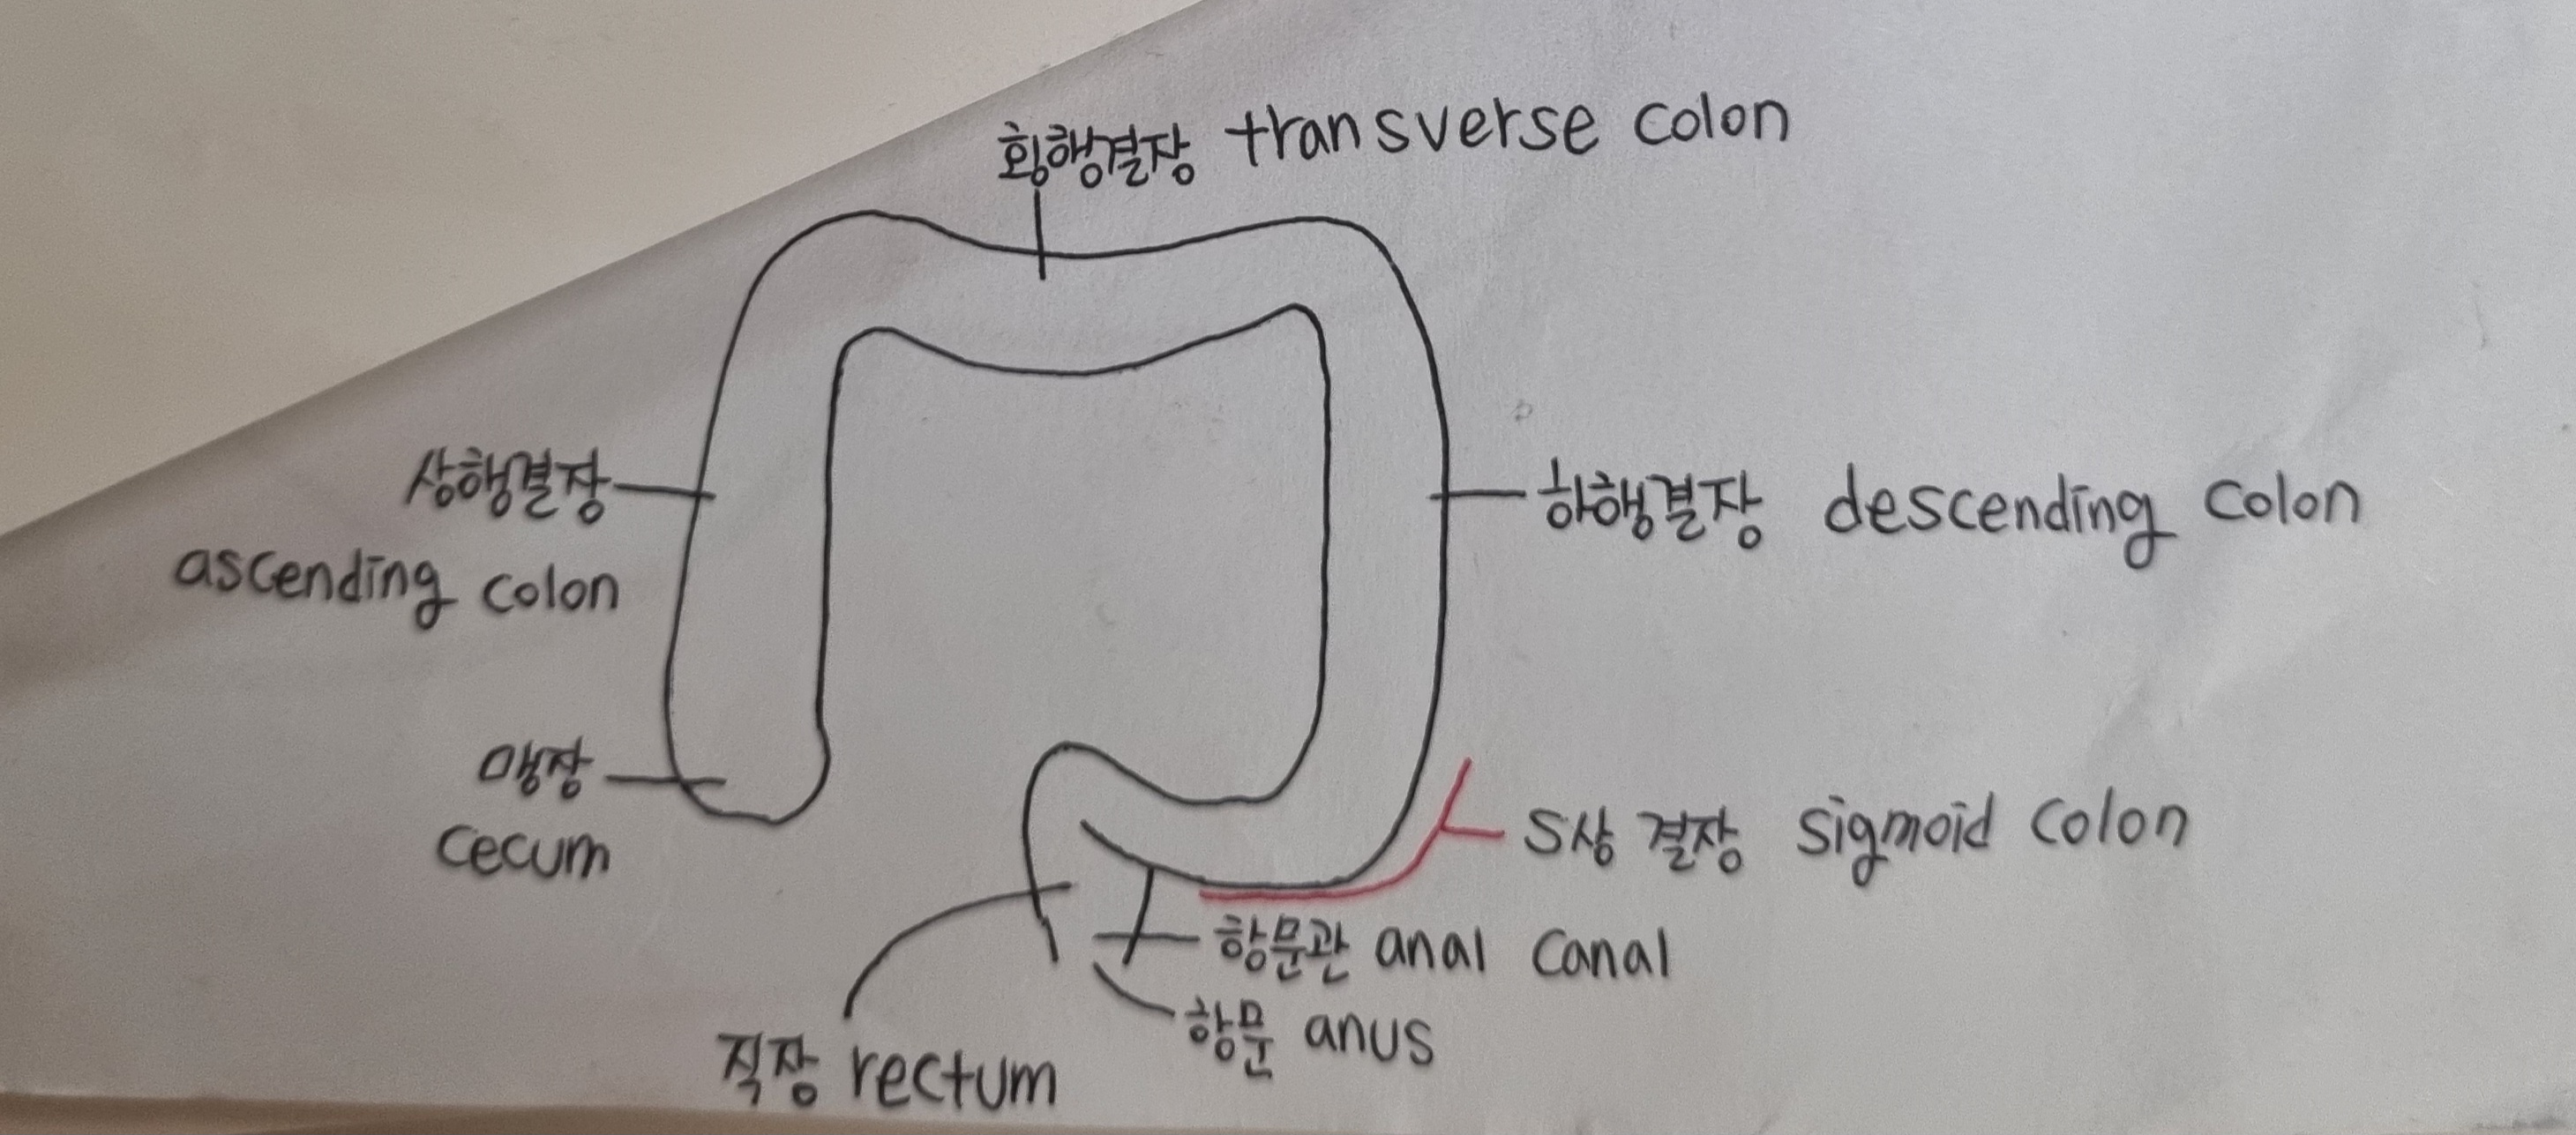 횡행결장 transverse colon
상행결장
ascending colon
하행결장 descending colon
맹장
cecum
S상 결장 sigmoid colon
항문관 anal canal
항문 anus
직장 rectum